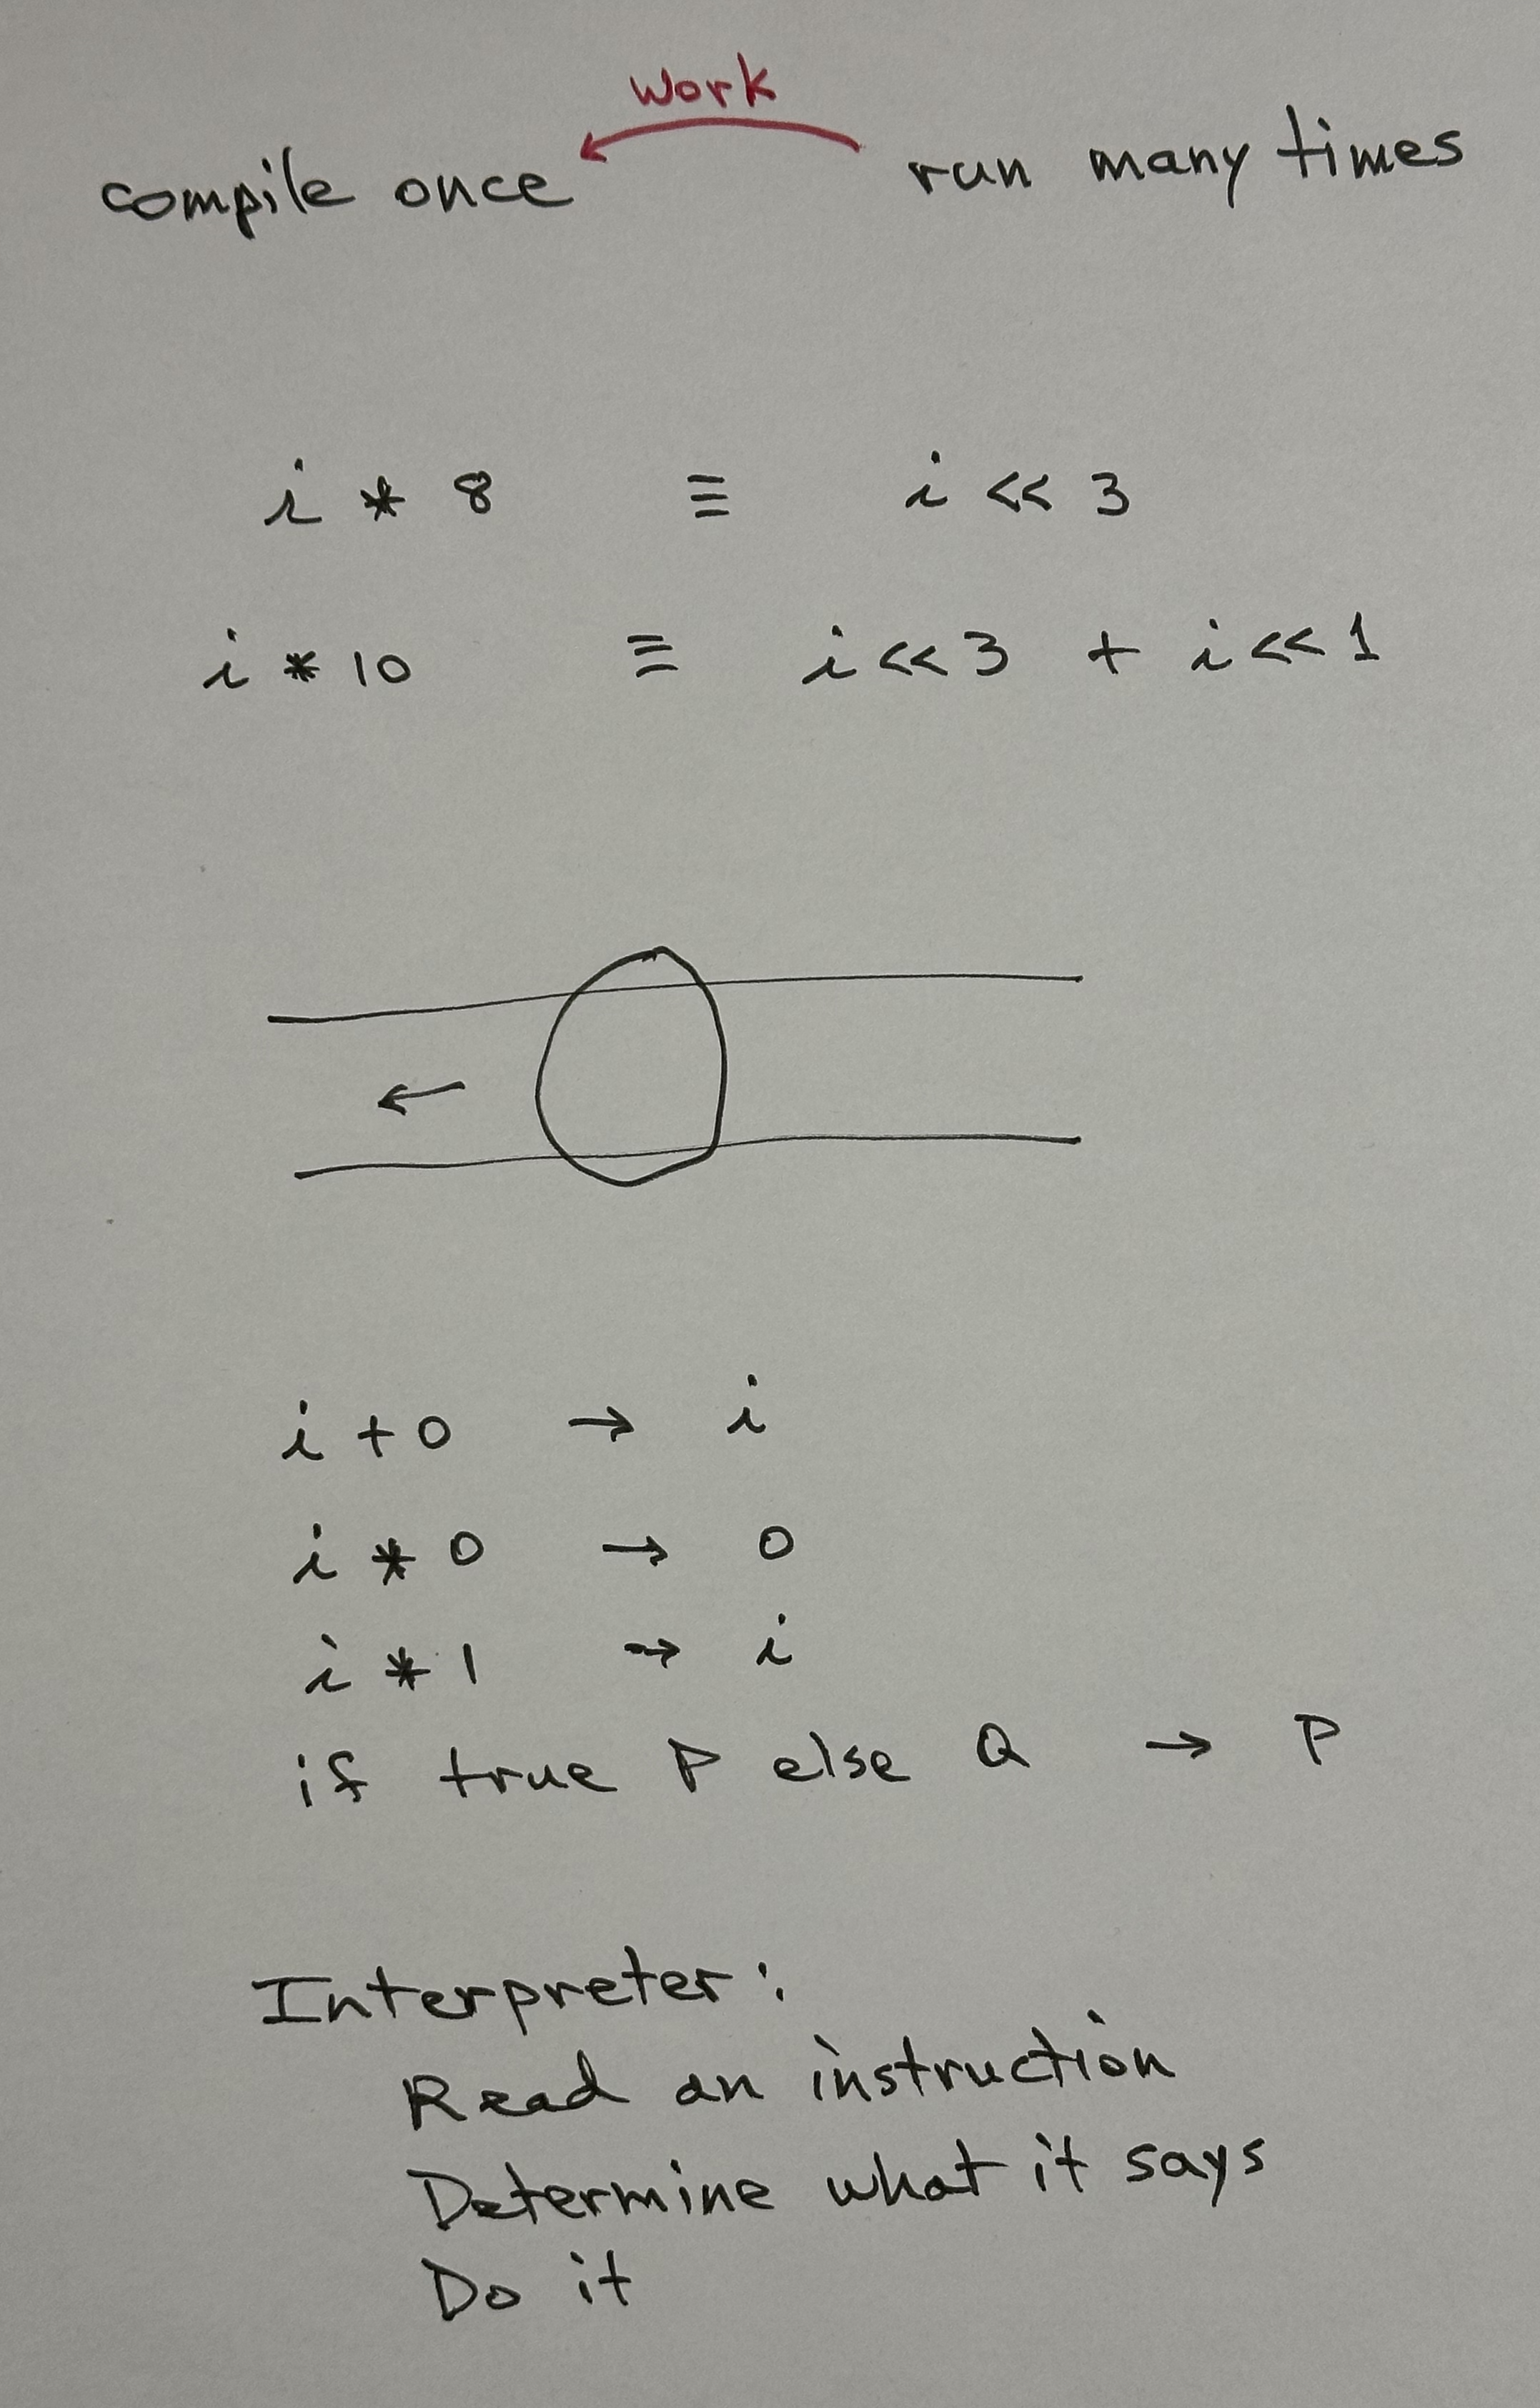 work
compile once run many times
i * 8 ≡ i << 3
i * 10 ≡ i << 3 + i << 1
←
i + 0 → i
i * 0 → 0
i * 1 → i
if true P else Q → P
Interpreter:
Read an instruction
Determine what it says
Do it